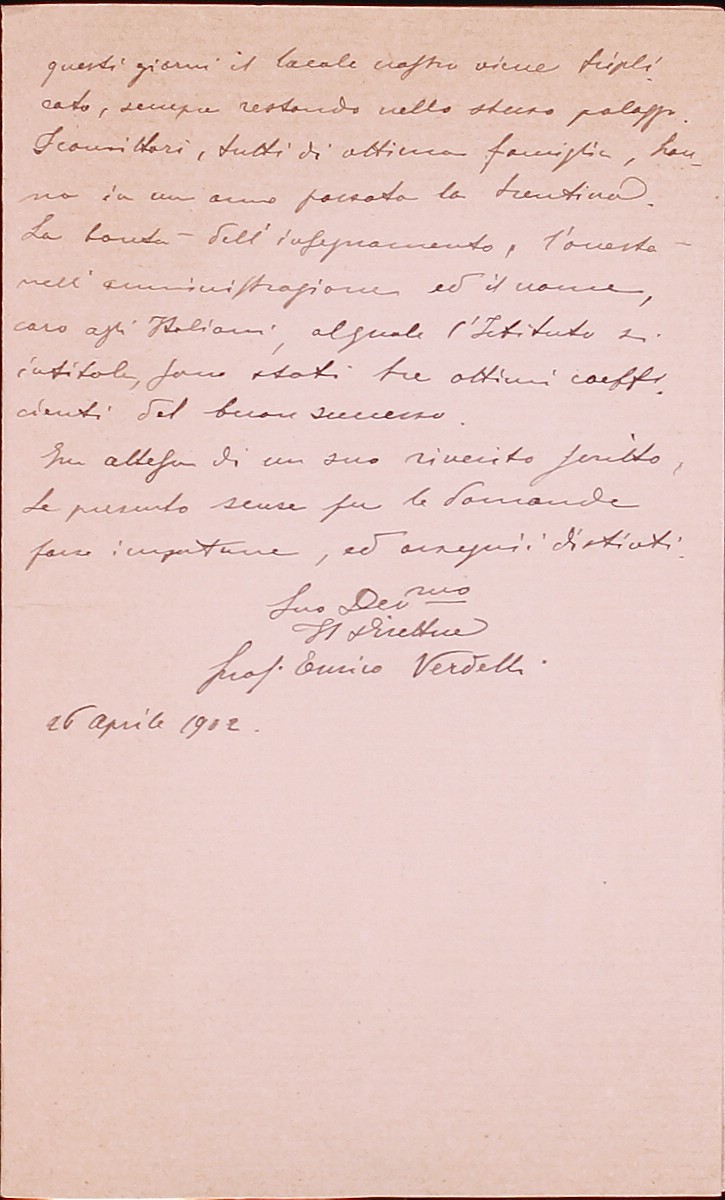 questi giorni il locale nostro viene tripli-
cato, sempre restando nello stesso palazzo.
I convittori, tutti di ottima famiglia, han-
no in un anno passata la trentina.
La bontà dell'insegnamento, l'onestà
nell'amministrazione ed il nome,
caro agli Italiani, al quale l'Istituto si
intitola, sono stati tre ottimi coeffi-
cienti del buon successo.
In attesa di un suo riverito scritto,
Le presento scuse per le domande
forse importune, ed ossequii distinti.
Suo Dev.mo
Il Direttore
Prof. Enrico Verdelli.
26 aprile 1902.